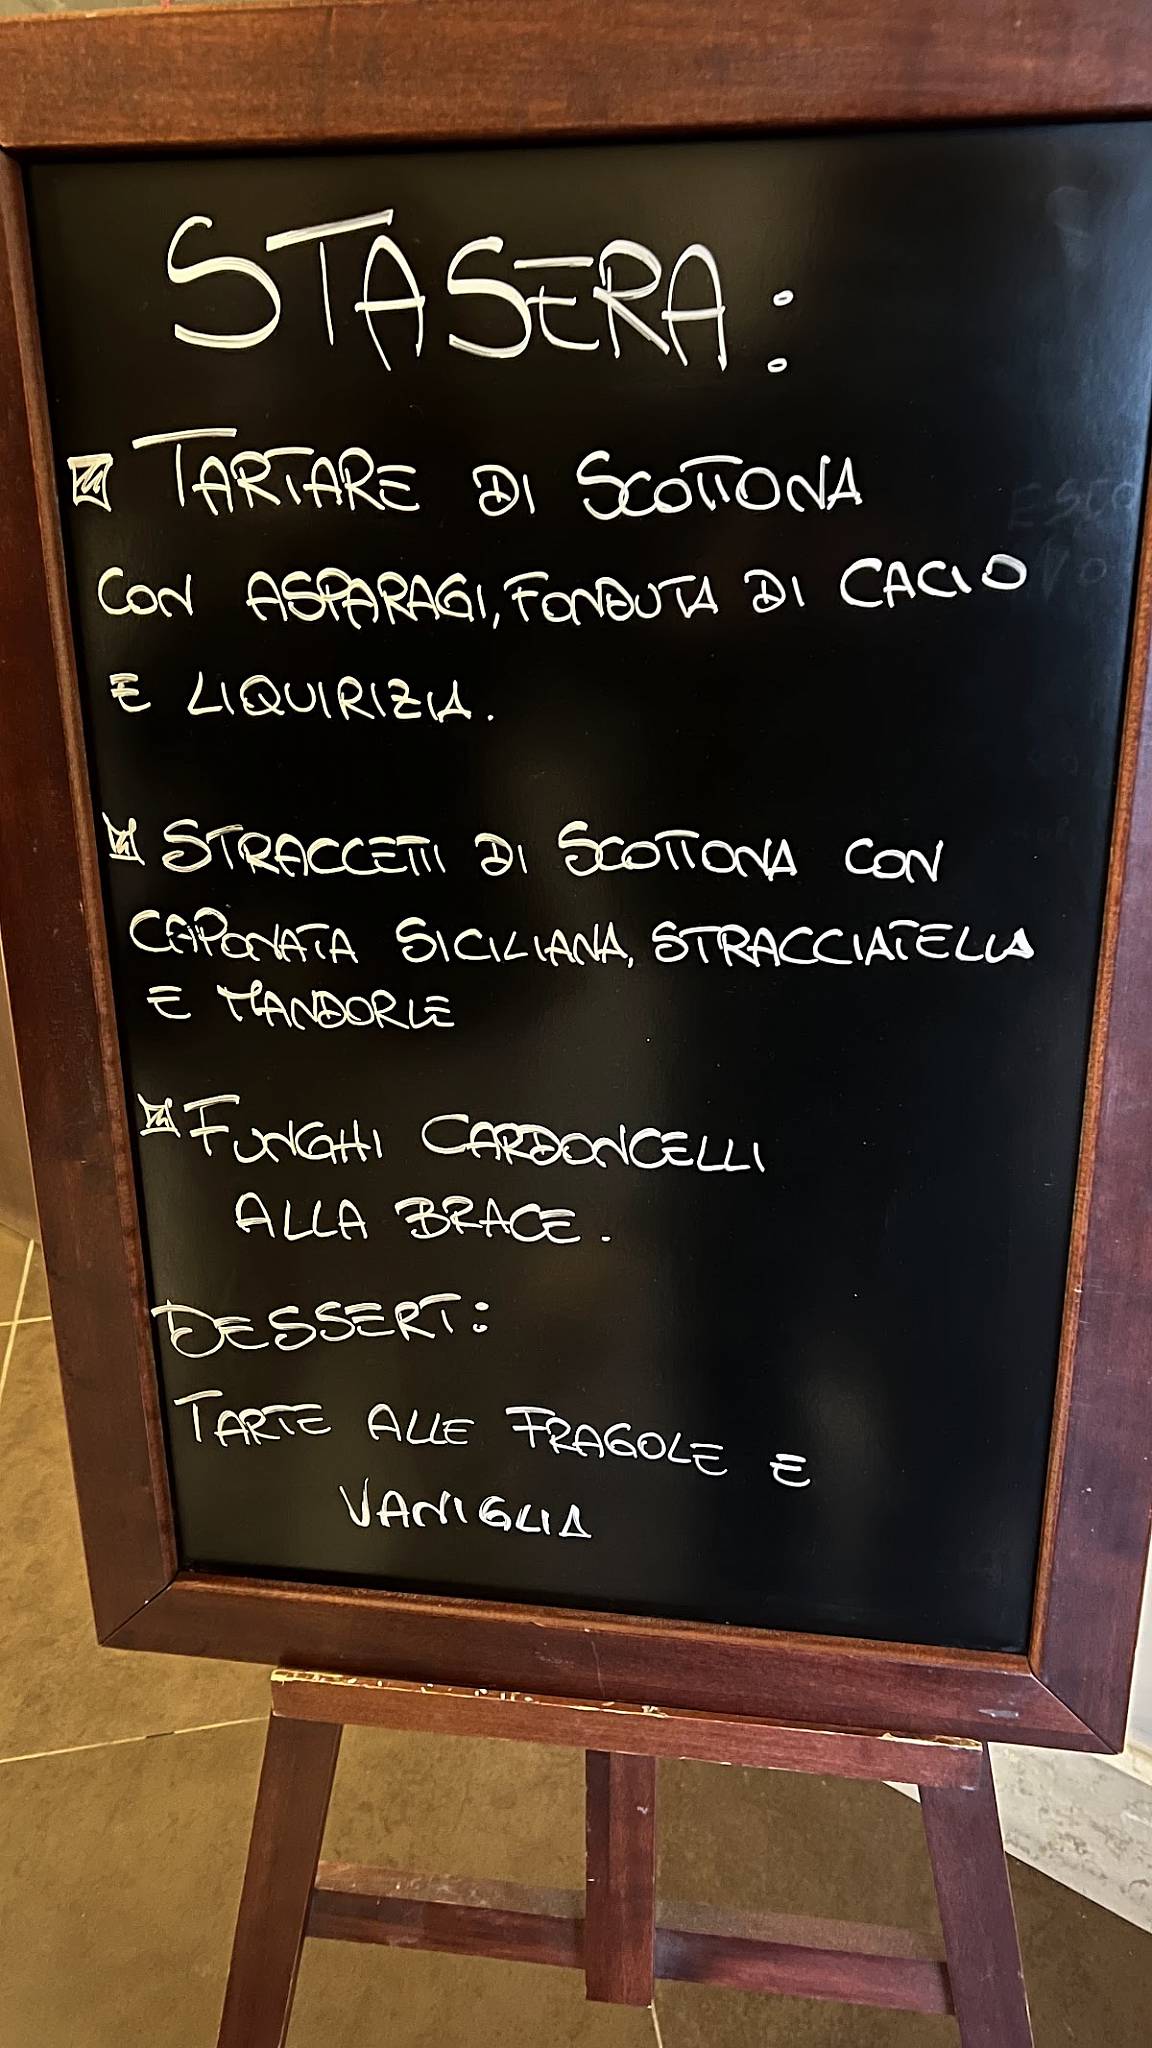 STASERA:
TARTARE DI SCOTTONA
CON ASPARAGI, FONDUTA DI CACIO
E LIQUIRIZIA.
STRACCETTI DI SCOTTONA CON
CAPONATA SICILIANA, STRACCIATELLA
E MANDORLE
FUNGHI CARDONCELLI
ALLA BRACE.
DESSERT:
TARTE ALLE FRAGOLE E
VANIGLIA